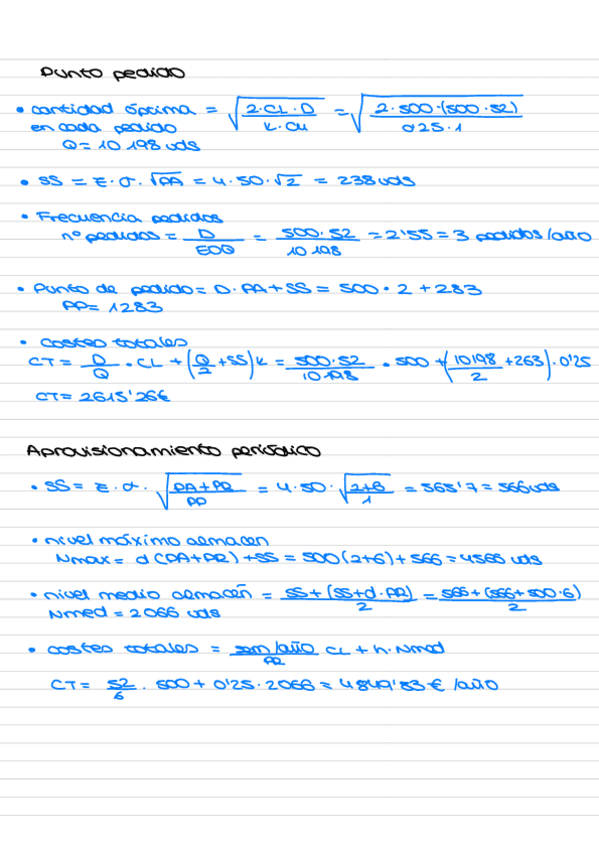 Punto pedido
• cantidad óptima = √(2·CL·D / K·Cu) = √(2·500·(500·52) / 0'25·1)
en cada pedido
Q = 10198 uds
• SS = z·σ·√PA = 4·50·√2 = 238 uds
• Frecuencia pedidos
nº pedidos = D/EOQ = 500·52/10198 = 2'55 = 3 pedidos/año
• Punto de pedido = D·PA + SS = 500·2 + 283
PP = 1283
• costes totales
CT = D/Q · CL + (Q/2 + SS) K = 500·52/10198 · 500 + (10198/2 + 263)·0'25
CT = 2615'26€
Aprovisionamiento periódico
• SS = z·σ·√(PA+PR / PP) = 4·50·√(2+6 / 1) = 565'7 = 566 uds
• nivel máximo almacen
Nmax = d(PA+PR) + SS = 500(2+6) + 566 = 4566 uds
• nivel medio almaceñ = SS + (SS + d·PR) / 2 = 566 + (566 + 500·6) / 2
Nmed = 2066 uds
• costes totales = sem/año / PR CL + h·Nmed
CT = 52/6 · 500 + 0'25·2066 = 4849'83 € /año